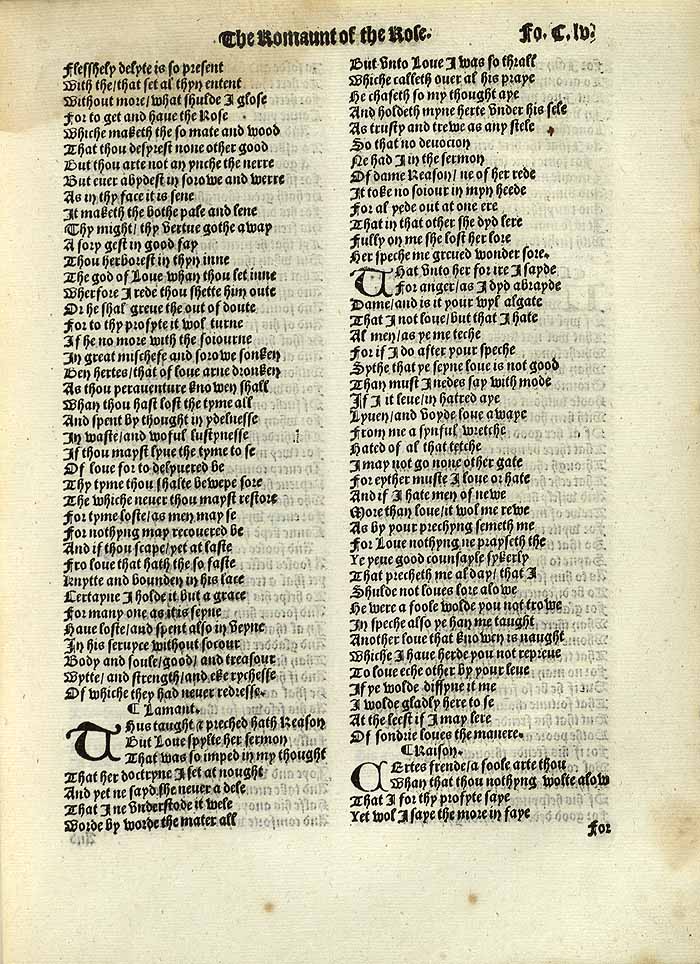 The Romaunt of the Rose. Fo. C. lv.
Flesshely delyte is so present
With the/that set al thyn entent
Without more/what shulde I glose
For to get and haue the Rose
Whiche maketh the so mate and wood
That thou desyrest none other good
But thou arte not an ynche the nerre
But euer abydest in sorowe and werre
As in thy face it is sene
It maketh the bothe pale and lene
Thy might/ thy vertue gothe away
A sory gest in good fay
Thou herborest in thyn inne
The god of Loue whan thou let inne
Wherfore I rede thou shette him oute
Or he shal greue the out of doute
For to thy profyte it wol turne
If he no more with the soiourne
In great mischefe and sorowe sonken
Ben hertes/that of loue arne dronken
As thou perauenture knowen shall
Whan thou hast lost the tyme all
And spent by thought in ydelnesse
In waste/and woful lustynesse
If thou mayst lyue the tyme to se
Of loue for to delyuered be
Thy tyme thou shalte bewepe sore
The whiche neuer thou mayst restore
For tyme loste/as men may se
For nothyng may recouered be
And if thou scape/yet at laste
Fro loue that hath the so faste
Knytte and bounden in his lace
Certayne I holde it but a grace
For many one as it is seyne
Haue loste/and spent also in veyne
In his seruyce without socour
Body and soule/good/ and treasour
Wytte/ and strength/and eke rychesse
Of whiche they had neuer redresse.
¶ Lamant.
THus taught & preched hath Reason
But Loue spylte her sermon
That was so imped in my thought
That her doctryne I set at nought
And yet ne sayd she neuer a dele
That I ne vnderstode it wele
Worde by worde the mater all
But vnto Loue I was so thrall
Whiche calleth ouer al his praye
He chaseth so my thought aye
And holdeth myne herte vnder his sele
As trusty and trewe as any stele
So that no deuocion
Ne had I in the sermon
Of dame Reason/ ne of her rede
It toke no soiour in myn heede
For al yede out at one ere
That in that other she dyd lere
Fully on me she lost her lore
Her speche me greued wonder sore.
THat vnto her for ire I sayde
For anger/as I dyd abrayde
Dame/and is it your wyl algate
That I not loue/but that I hate
Al men/as ye me teche
For if I do after your speche
Sythe that ye seyne loue is not good
Than must I nedes say with mode
If I it leue/in hatred aye
Lyuen/and voyde loue awaye
From me a synful wretche
Hated of al that tetche
I may not go none other gate
For eyther muste I loue or hate
And if I hate men of newe
More than loue/it wol me rewe
As by your prechyng semeth me
For Loue nothyng ne prayseth the
Ye yeue good counsayle sykerly
That precheth me al day/ that I
Shulde not loues lore alowe
He were a foole wolde you not trowe
In speche also ye han me taught
Another loue that knowen is naught
Whiche I haue herde you not repreue
To loue eche other by your leue
If ye wolde diffyne it me
I wolde gladly here to se
At the leest if I may lere
Of sondrie loues the manere.
¶ Raison.
CErtes frende/a foole arte thou
Whan that thou nothyng wolte alow
That I for thy profyte saye
Yet wol I saye the more in faye
For